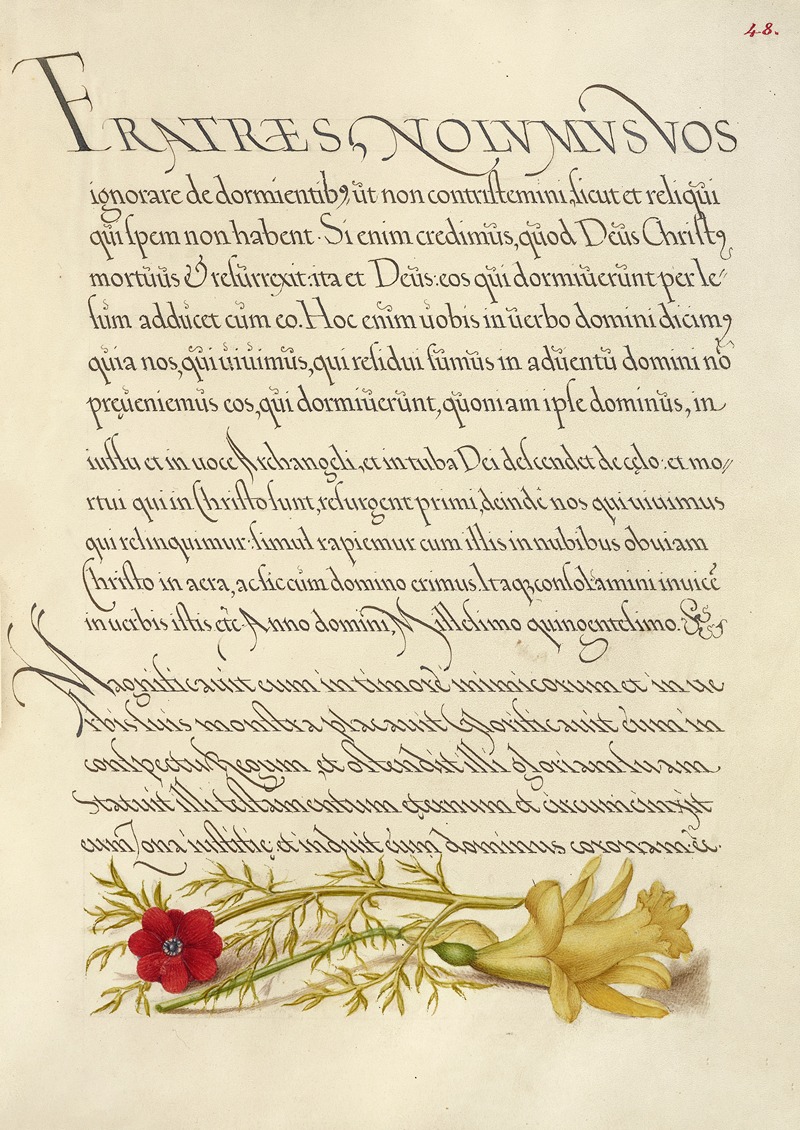 48.
FRATRÆS, NOLVMVS VOS
ignorare de dormientibꝰ, ut non contristemini, sicut et reliqui
qui spem non habent. Si enim credimus, quod Deus Christꝰ
mortuus & resurrexit: ita et Deus: eos qui dormiuerunt per Ie//
sum adducet cum eo. Hoc enim uobis in uerbo domini dicimꝰ
quia nos, qui uiuimus, qui residui sumus in aduentu domini nō
pręueniemus eos, qui dormiuerunt, quoniam ipse dominus, in
iussu et in uoce Archangeli, et in tuba Dei descendet de cęlo: et mo//
rtui qui in Christo sunt, resurgent primi, deinde nos qui uiuimus
qui relinquimur: simul rapiemur cum illis in nubibus obuiam
Christo in aera, ac sic cum domino erimus. Itaq; consolamini inuicē
in uerbis istis etc. Anno domini, Millesimo quinogentesimo.
Magnificauit eum in timore inimicorum et in ue
rbis suis monstra placauit Glorificauit eum in
conspectu Regum et ostendit illi gloriam suam
Statuit illi testamentum eternum et circumcinxit
eum Zona iustitię, et induit eum dominus coronam